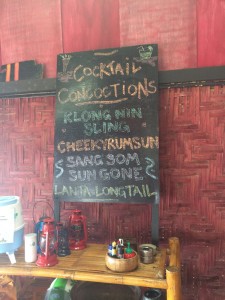 COCKTAIL
CONCOCTIONS
KLONG NIN
SLING
CHEEKYRUMSUN
SANG SOM
SUN GONE
LANTA-LONGTAIL